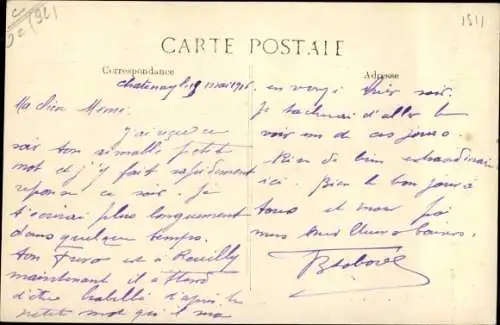 1511
CARTE POSTALE
Correspondance
Adresse
Chatenay le 19 mai 1916
Ma chère Mémé
J'ai reçu ce
soir ton aimable petit
mot et j'y fait rapidement
réponse ce soir. Je
t'écrirai plus longuement
dans quelque temps.
ton est à Reuilly
maintenant il a
d'être habillé d'après le
petit mot qu'il m'a
hier soir.
Je tacherai d'aller le
voir un de ces jours.
Rien de bien extraordinaire
ici. Bien le bon jour à
tous et pour toi
mes meilleurs baisers.